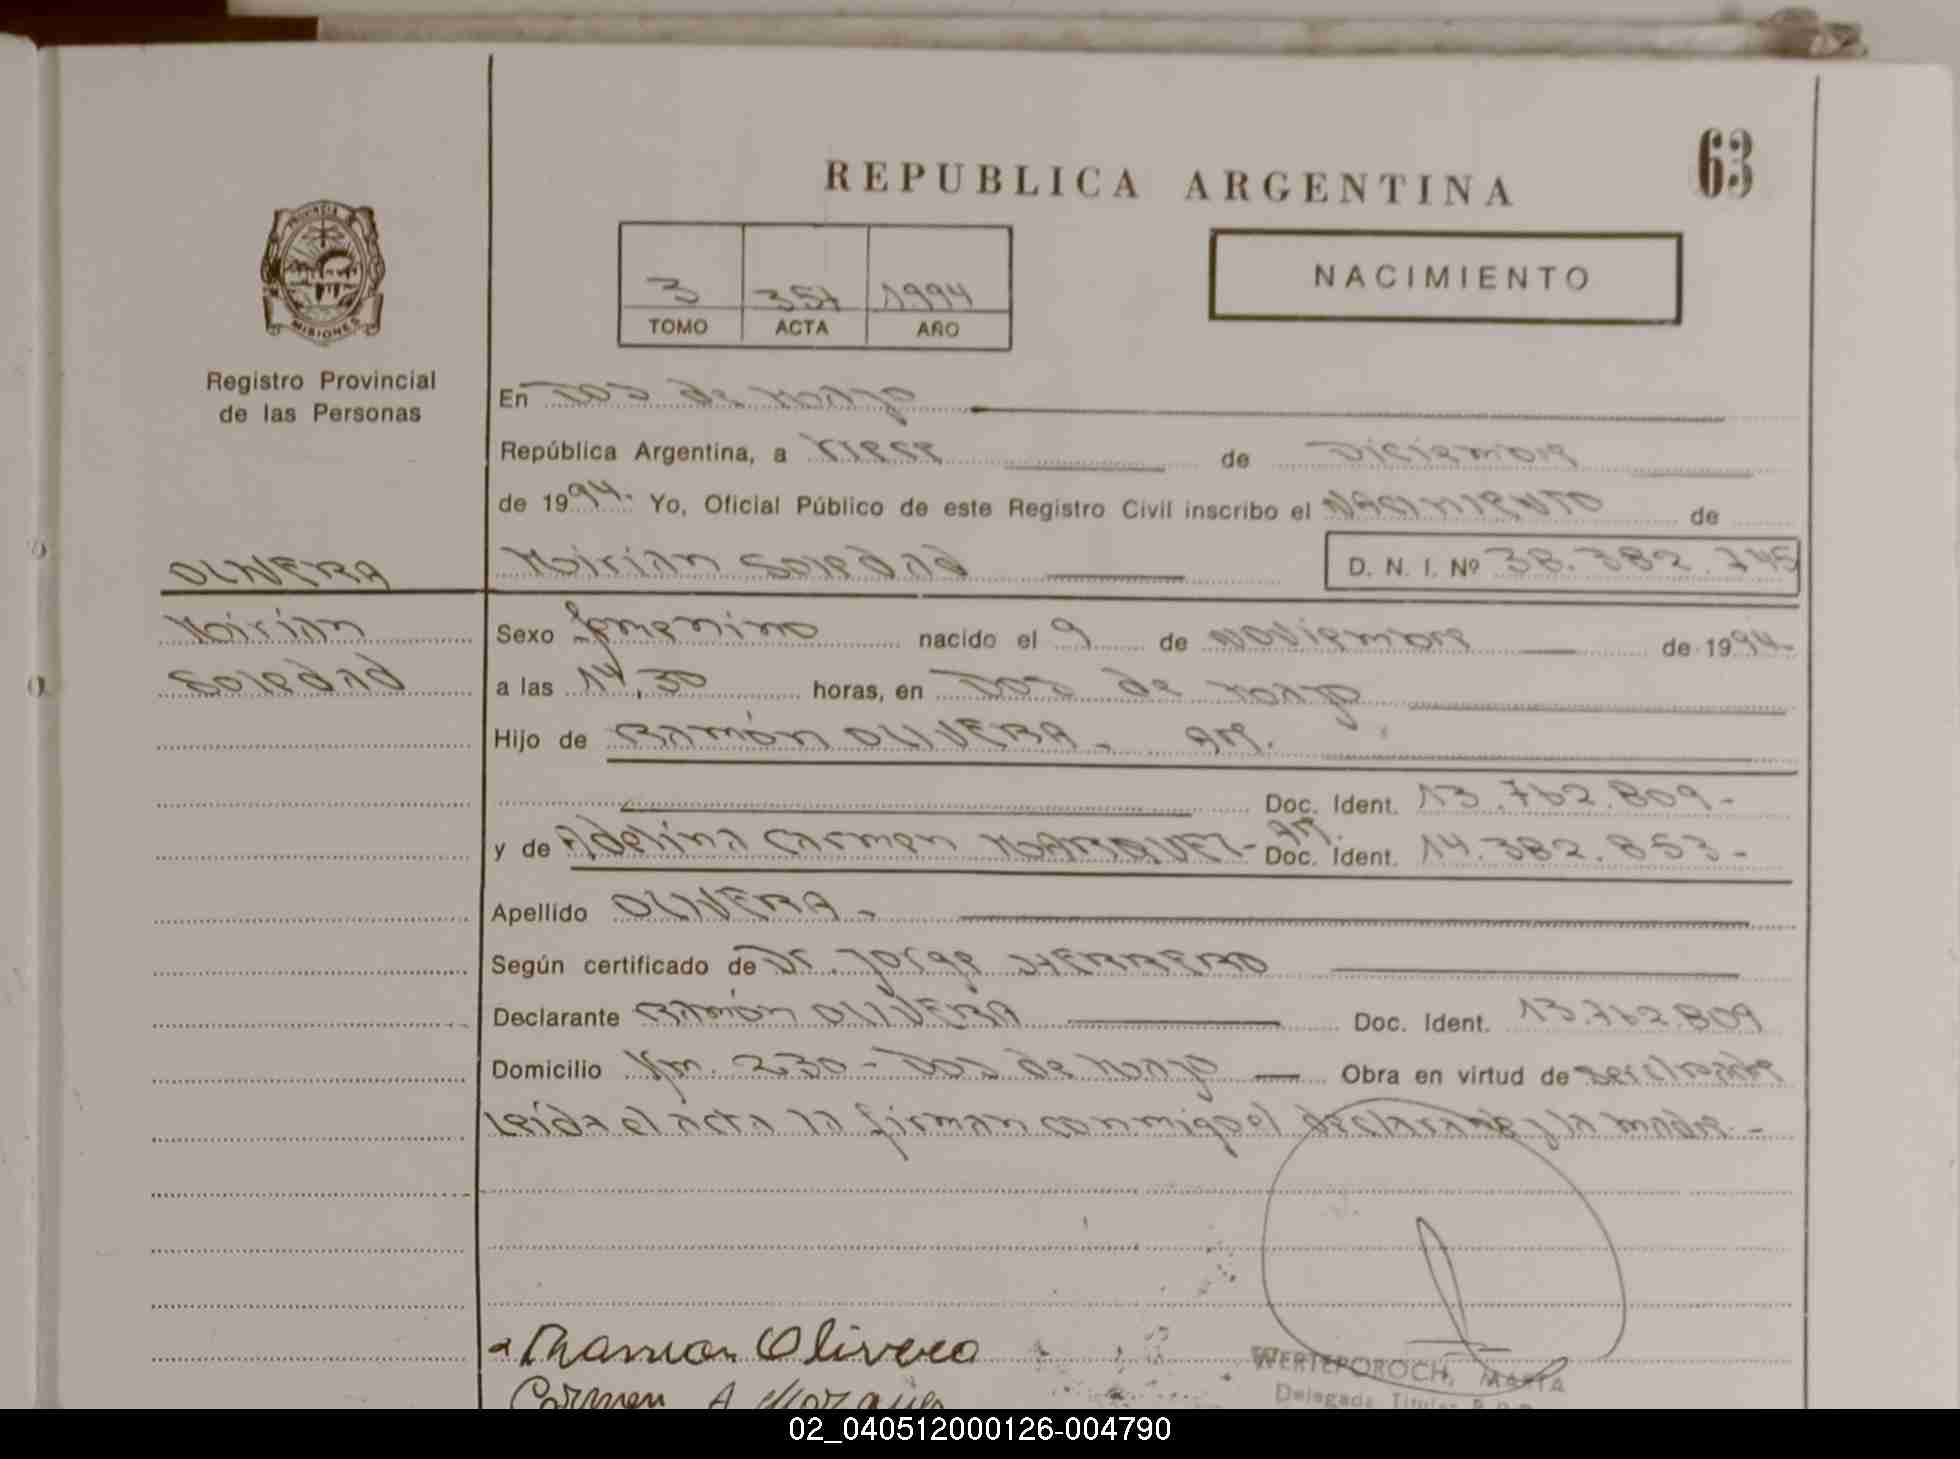 63
REPUBLICA ARGENTINA
NACIMIENTO
3 357 1994
TOMO ACTA AÑO
PROVINCIA
MISIONES
Registro Provincial
de las Personas
En Dos de Mayo
República Argentina, a trece de Diciembre
de 1994. Yo, Oficial Público de este Registro Civil inscribo el NACIMIENTO de
OLIVERA
Mirian Soledad D. N. I. Nº 38.382.745
Mirian
Soledad
Sexo femenino nacido el 9 de Noviembre de 1994-
a las 14,30 horas, en Dos de Mayo
Hijo de RAMÓN OLIVERA. AR.
Doc. Ident. 13.762.809-
y de Adelina Carmen MARQUEZ- AR. Doc. Ident. 14.382.853-
Apellido OLIVERA.
Según certificado de Dr. Jorge HERRERO
Declarante RAMÓN OLIVERA Doc. Ident. 13.762.809
Domicilio Km. 230 - Dos de Mayo Obra en virtud de
Leída el acta la firman conmigo el declarante y la madre.-
Ramon Olivera
Carmen A
WERTEPOROCH, MARTA
Delegada Titular
02_040512000126-004790